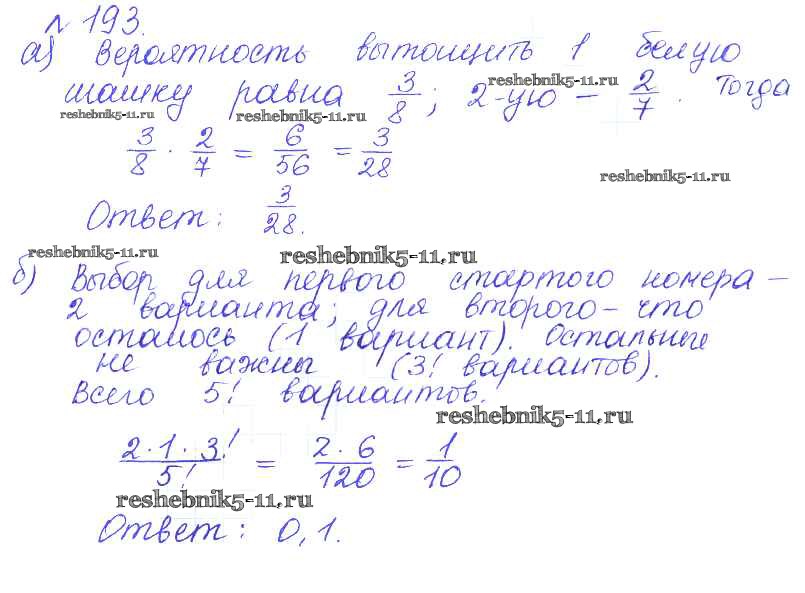 № 193.
а) Вероятность вытощить 1 белую
reshebnik5-11.ru
шашку равна 3/8; 2-ую – 2/7. Тогда
reshebnik5-11.ru reshebnik5-11.ru
3/8 · 2/7 = 6/56 = 3/28
reshebnik5-11.ru
Ответ: 3/28.
reshebnik5-11.ru reshebnik5-11.ru
б) Выбор для первого стартого номера –
2 варианта; для второго – что
осталось (1 вариант). Остальные
не важны (3! вариантов).
Всего 5! вариантов.
reshebnik5-11.ru
2·1·3!/5! = 2·6/120 = 1/10
reshebnik5-11.ru
Ответ: 0,1.